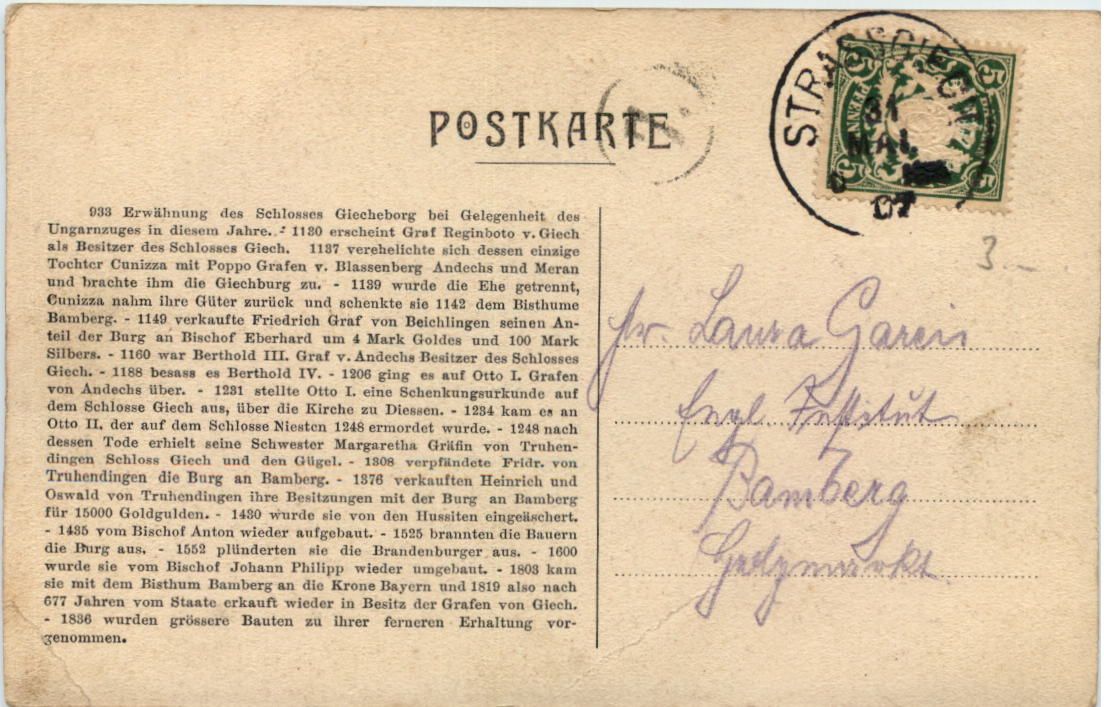 POSTKARTE
STRASSGIECH
31
MAI
07
5
5
PFENNIG
5
5
933 Erwähnung des Schlosses Giecheborg bei Gelegenheit des
Ungarnzuges in diesem Jahre. - 1130 erscheint Graf Reginboto v. Giech
als Besitzer des Schlosses Giech. 1137 verehelichte sich dessen einzige
Tochter Cunizza mit Poppo Grafen v. Blassenberg Andechs und Meran
und brachte ihm die Giechburg zu. - 1139 wurde die Ehe getrennt,
Cunizza nahm ihre Güter zurück und schenkte sie 1142 dem Bisthume
Bamberg. - 1149 verkaufte Friedrich Graf von Beichlingen seinen An-
teil der Burg an Bischof Eberhard um 4 Mark Goldes und 100 Mark
Silbers. - 1160 war Berthold III. Graf v. Andechs Besitzer des Schlosses
Giech. - 1188 besass es Berthold IV. - 1206 ging es auf Otto I. Grafen
von Andechs über. - 1231 stellte Otto I. eine Schenkungsurkunde auf
dem Schlosse Giech aus, über die Kirche zu Diessen. - 1234 kam es an
Otto II. der auf dem Schlosse Niesten 1248 ermordet wurde. - 1248 nach
dessen Tode erhielt seine Schwester Margaretha Gräfin von Truhen-
dingen Schloss Giech und den Gügel. - 1308 verpfändete Fridr. von
Truhendingen die Burg an Bamberg. - 1376 verkauften Heinrich und
Oswald von Truhendingen ihre Besitzungen mit der Burg an Bamberg
für 15000 Goldgulden. - 1430 wurde sie von den Hussiten eingeäschert.
- 1435 vom Bischof Anton wieder aufgebaut. - 1525 brannten die Bauern
die Burg aus. - 1552 plünderten sie die Brandenburger aus. - 1600
wurde sie vom Bischof Johann Philipp wieder umgebaut. - 1803 kam
sie mit dem Bisthum Bamberg an die Krone Bayern und 1819 also nach
677 Jahren vom Staate erkauft wieder in Besitz der Grafen von Giech.
- 1836 wurden grössere Bauten zu ihrer ferneren Erhaltung vor-
genommen.
3.-
Laura Gareis
Engl. Institut
Bamberg
Holzmarkt.